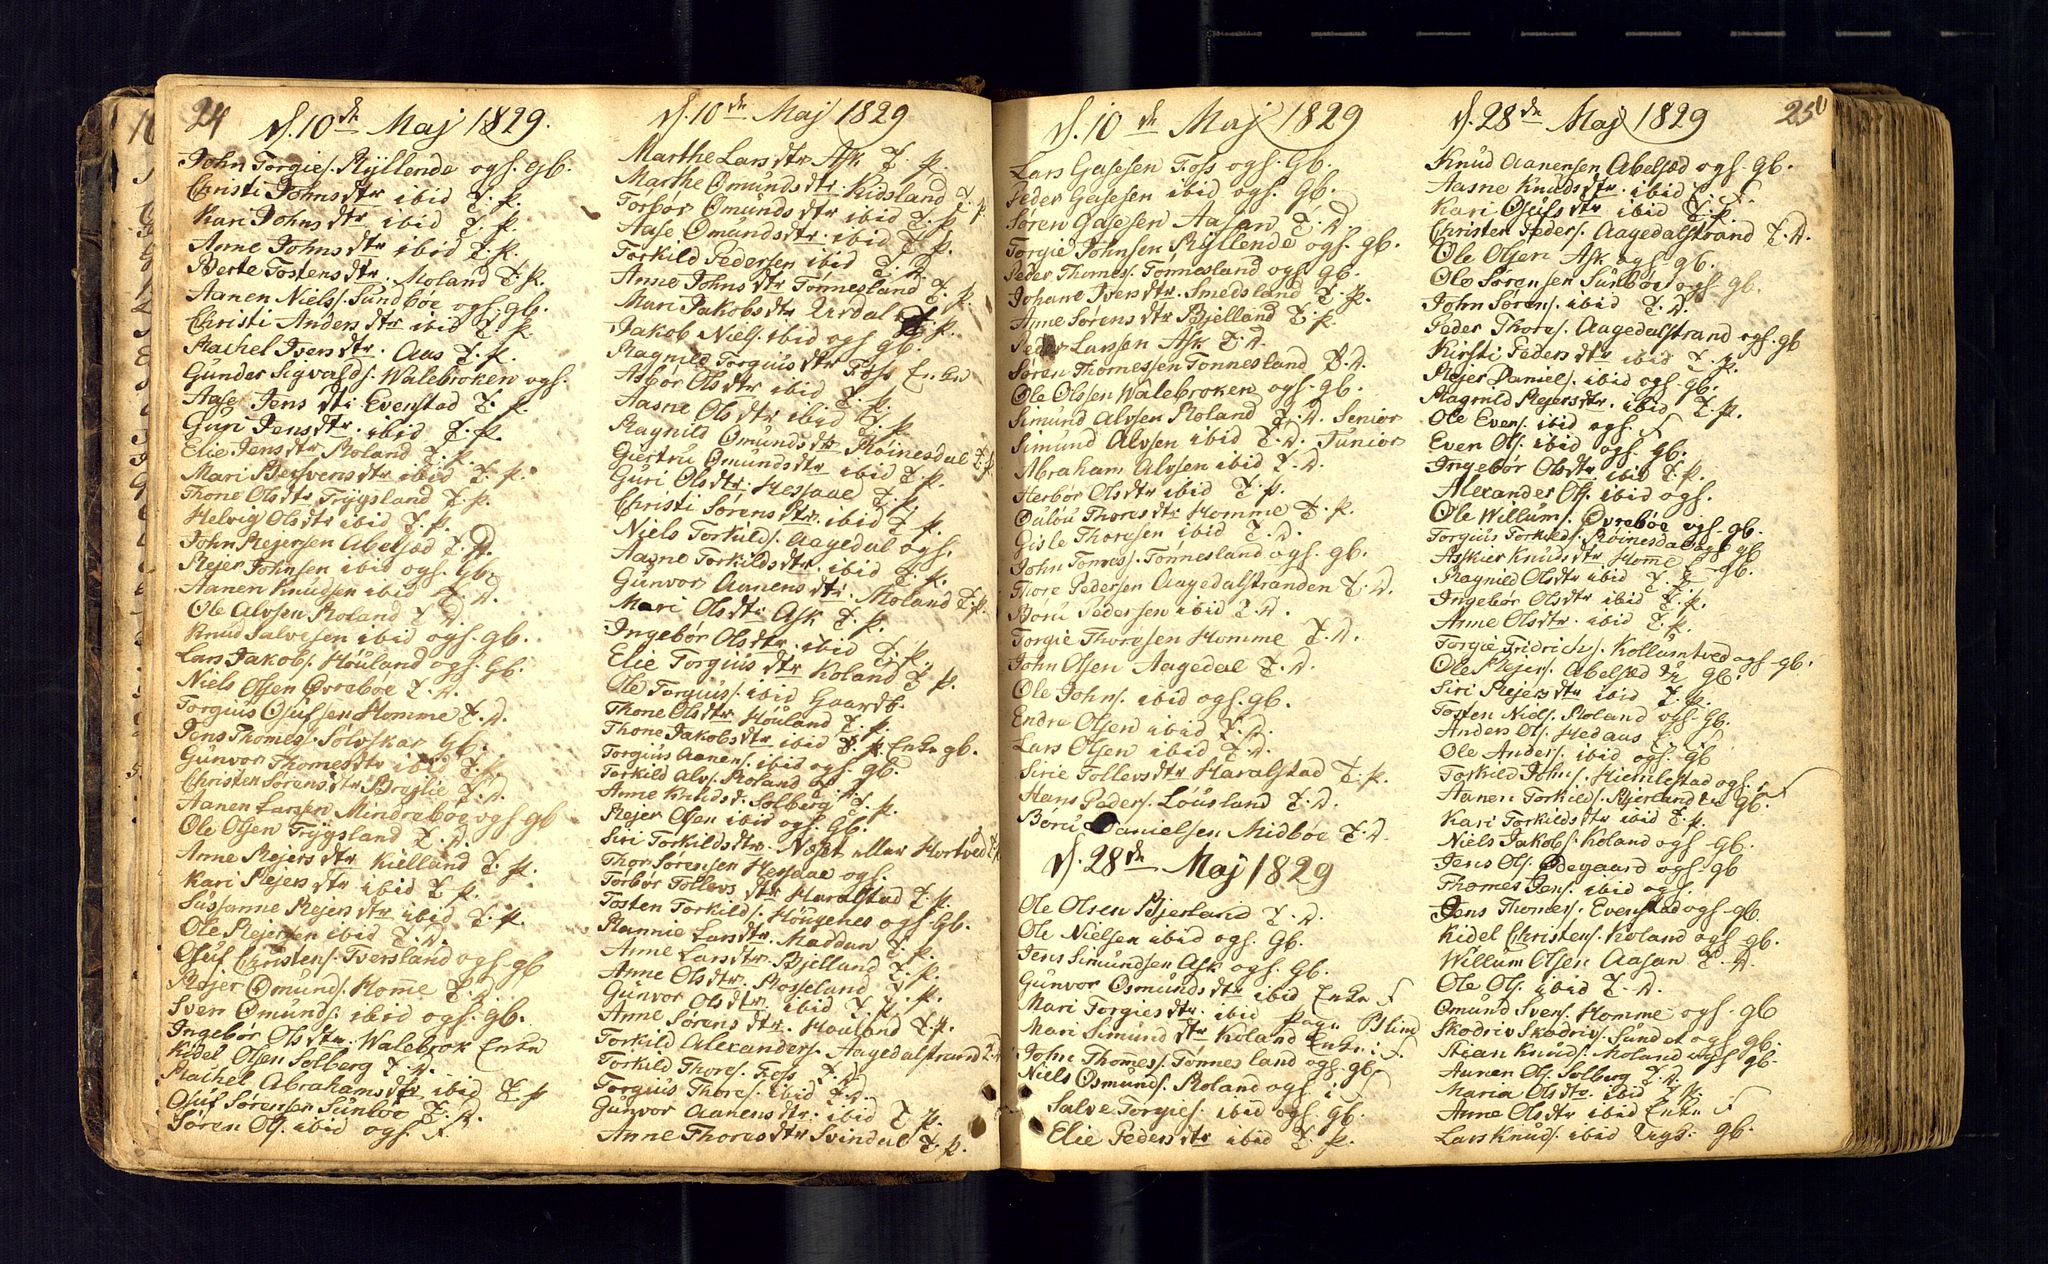 24
d. 10de Maj 1829.
John Torgies. Kyllende ogs. gb.
Christi Johnsdtr ibid T. p.
Kari Johnsdtr ibid T. p.
Anne Johnsdtr ibid T. p.
Berte Tostensdtr. Moland T. p.
Aanen Niels. Sundbøe ogs. gb.
Christi Andersdtr ibid T. p.
Rachel Iversdtr. Aas T. p.
Gunder Sigvalds. Walebroken ogs.
Aase Jensdtr Evenstad T. p.
Guri Jensdtr. ibid T. p.
Elie Jensdtr Roland T. p.
Mari Besvensdtr ibid T. p.
Thone Olsdtr Trygsland T. p.
Helvig Olsdtr ibid T. p.
John Rejersen Abelsæd T. D.
Rejer Johnsen ibid ogs. Gb.
Aanen Knudsen ibid T. D.
Ole Alvsen Roland T. D.
Knud Salvesen ibid ogs. gb.
Lars Jakobs. Houland ogs. Gb.
Niels Olsen Øvrebøe T. D.
Torgius Osufsen Homme T. D.
Jens Thomes. Solvskar Gb.
Gunvor Thomesdtr ibid T. p.
Christen Sørensdtr Brejlie T. D.
Aanen Larsen Mindrebøe ogs gb
Ole Olsen Trygsland T. D.
Anne Rejersdtr Kielland T. p.
Kari Rejersdtr ibid T. p.
Susanne Rejersdtr ibid T. p.
Ole Rejersen ibid T. D.
Osuf Christens. Tversland ogs. gb
Rejer Omunds. Home T. D.
Sven Omunds. ibid ogs. gb.
Ingebør Olsdtr. Walebrok Enke
Kidel Olsen Solberg T. D.
Rachel Abrahamsdtr ibid T. p
Osuf Sørensen Sunboe T. D.
Søren Ols. ibid ogs. F.
d. 10de Maj 1829
Marthe Larsdtr Ask T. p.
Marthe Omundsdtr Kidsland T. p.
Torbor Omundsdtr ibid T. p.
Aase Omundsdtr. ibid T. p.
Torkild Pedersen ibid T. D.
Anne Johnsdtr Tonnesland T. p.
Mari Jakobsdtr Urdal T. p.
Jakob Niels. ibid ogs gb.
Ragnild Torgiusdtr Foss Enke
Asbor Olsdtr ibid T. p.
Aasne Olsdtr ibid T. p.
Ragnild Omundsdtr Røinesdal T. p.
Giertru Omundsdtr ibid T. p.
Guri Olsdtr. Hessaae T. p.
Christi Sørensdtr. ibid T. p.
Niels Torkilds. Aagedal ogs.
Aasne Torkildsdtr. ibid T. p.
Gunvor Aanensdtr. Moland T. p.
Mari Olsdtr Ask T. p.
Ingebør Olsdtr. ibid T. p.
Elie Torgiusdtr Koland T. p.
Ole Torgius. ibid Gaardb.
Thone Olsdtr. Houland T. p.
Thone Jakobsdtr ibid T. p. Enke gb.
Torgius Aanens. ibid ogs. gb.
Torkild Alvs. Roland T. D.
Anne Knudsdtr. Solberg T. p.
Rejer Olsen ibid ogs. Gb.
Siri Torkildsdtr. Nøset eller Hortved T. p
Thor Sørensen Hessaae ogs.
Torbør Tollevsdtr Haralstad T. p.
Tosten Torkilds. Hougehes ogs Gb.
Rannie Larsdtr. Maddun T. p.
Anne Larsdtr. Bjelland T. p.
Anne Olsdtr. Rosseland T. p.
Gunvor Olsdtr. ibid T. p.
Anne Sørensdtr. Houland T. p.
Torkild Alexanders. Aagedalstrand T. D
Torkild Thores. Foss T. D.
Torgius Thores. ibid T. D.
Gunvor Aanensdtr. ibid T. p.
Anne Thoresdtr Svindal T. p.
d. 10de Maj 1829
Lars Gasesen Foss ogs. Gb.
Peder Gasesen ibid ogs. gb.
Søren Gasesen Aasan T. D
Torgie Johnsen Kyllende ogs. gb.
Peder Thomes. Tonnesland ogs. gb.
Johane Iversdtr. Smedsland T. p.
Anne Sørensdtr Bjelland T. p.
Peder Larssen Ask T. D.
Søren Thomessen Tonnesland T. D.
Ole Olsen Walebroken ogs. gb.
Simund Alvsen Roland T. D. Senior
Simund Alvsen ibid T. D. Junior
Abraham Alvsen ibid T. D.
Herbør Olsdtr ibid T. p.
Oulou Thoresdtr Homme T. p.
Gisle Thoresen ibid T. D.
John Tonness. Tonnesland ogs. gb.
Thore Pedersen Aagedalstranden T. D.
Boru Pedersen ibid T. D.
Torgie Thoresen Homme T. D.
John Olsen Aagedal T. D.
Ole Johns. ibid ogs. gb.
Endre Olsen ibid T. D.
Lars Olsen ibid T. D.
Sirie Tollevsdtr Haralstad T. p.
Hans Peders. Lousland T. D.
Boru Danielsen Midboe T. D.
d. 28de Maj 1829
Ole Olsen Bjerland T. D.
Ole Nielsen ibid ogs. Gb.
Jens Simundsen Ask ogs. Gb.
Gunvor Osmundsdtr ibid Enke F
Mari Torgiesdtr. ibid Blind
Mari Simundsdtr Koland Enke i F.
John Thomess. Tonnesland ogs. gb
Niels Osmunds. Roland ogs i F
Salve Torgies. ibid ogs. gb.
Elie Pedersdtr ibid T. p.
25
d. 28de Maj 1829
Knud Aanensen Abelsæd ogs. gb.
Aasne Knudsdtr. ibid T. F.
Kari Osufsdtr ibid T. p.
Christen Peders. Aagedalstrand T. D.
Ole Olsen Ask ogs gb.
Ole Sørensen Sunbøe ogs gb.
John Sørens. ibid T. D.
Peder Thores. Aagedalstrand ogs. gb
Kirsti Pedersdtr ibid T. p.
Rejer Daniels. ibid ogs. gb.
Ragnild Rejersdtr. ibid T. p.
Ole Evens. ibid ogs. F
Even Ols. ibid ogs. Gb.
Ingebør Olsdtr ibid T. p.
Alexander Ols. ibid ogs.
Ole Willums. Øvrebøe ogs. gb.
Torgius Torkilds. Røinesdal ogs gb
Askier Knudsdtr Home T gb.
Ragnild Olsdtr ibid T. p.
Ingebør Olsdtr ibid T. p.
Anne Olsdtr. ibid T. p.
Torgie Fridrichs. Kollumtved ogs gb.
Ole Rejers. Abelsæd gb.
Siri Rejersdtr ibid T. p.
Tosten Niels. Roland ogs. Gb.
Anders Ols. Hedaus T. D.
Ole Anders. ibid ogs. Gb
Torkild Johns. Hiemlestad ogs. F
Aanen Torkilds. Rjerland gb.
Kari Torkildsdtr ibid T. p.
Niels Jakobs. Koland ogs Gb.
Jens Ols. Ødegaard ogs. Gb
Thomes Jens. ibid ogs.
Jens Thomes. Evenstad ogs. gb.
Kidel Christens. Koland ogs gb.
Willum Olsen Aasan T. D.
Ole Ols. ibid T. D.
Omund Svens. Homme ogs. gb
Skodriv Skodrivs. Sundet ogs gb.
Stian Knuds. Roland ogs gb.
Aanen Ols. Solberg T. D.
Maria Olsdtr. ibid T. p.
Anne Olsdtr ibid Enke F
Lars Knuds. ibid Ligs. gb.